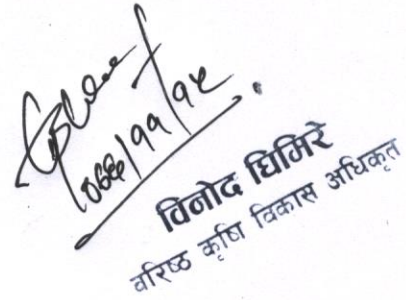 ०६६/११/१५
विनोद घिमिरे
वरिष्ठ कृषि विकास अधिकृत